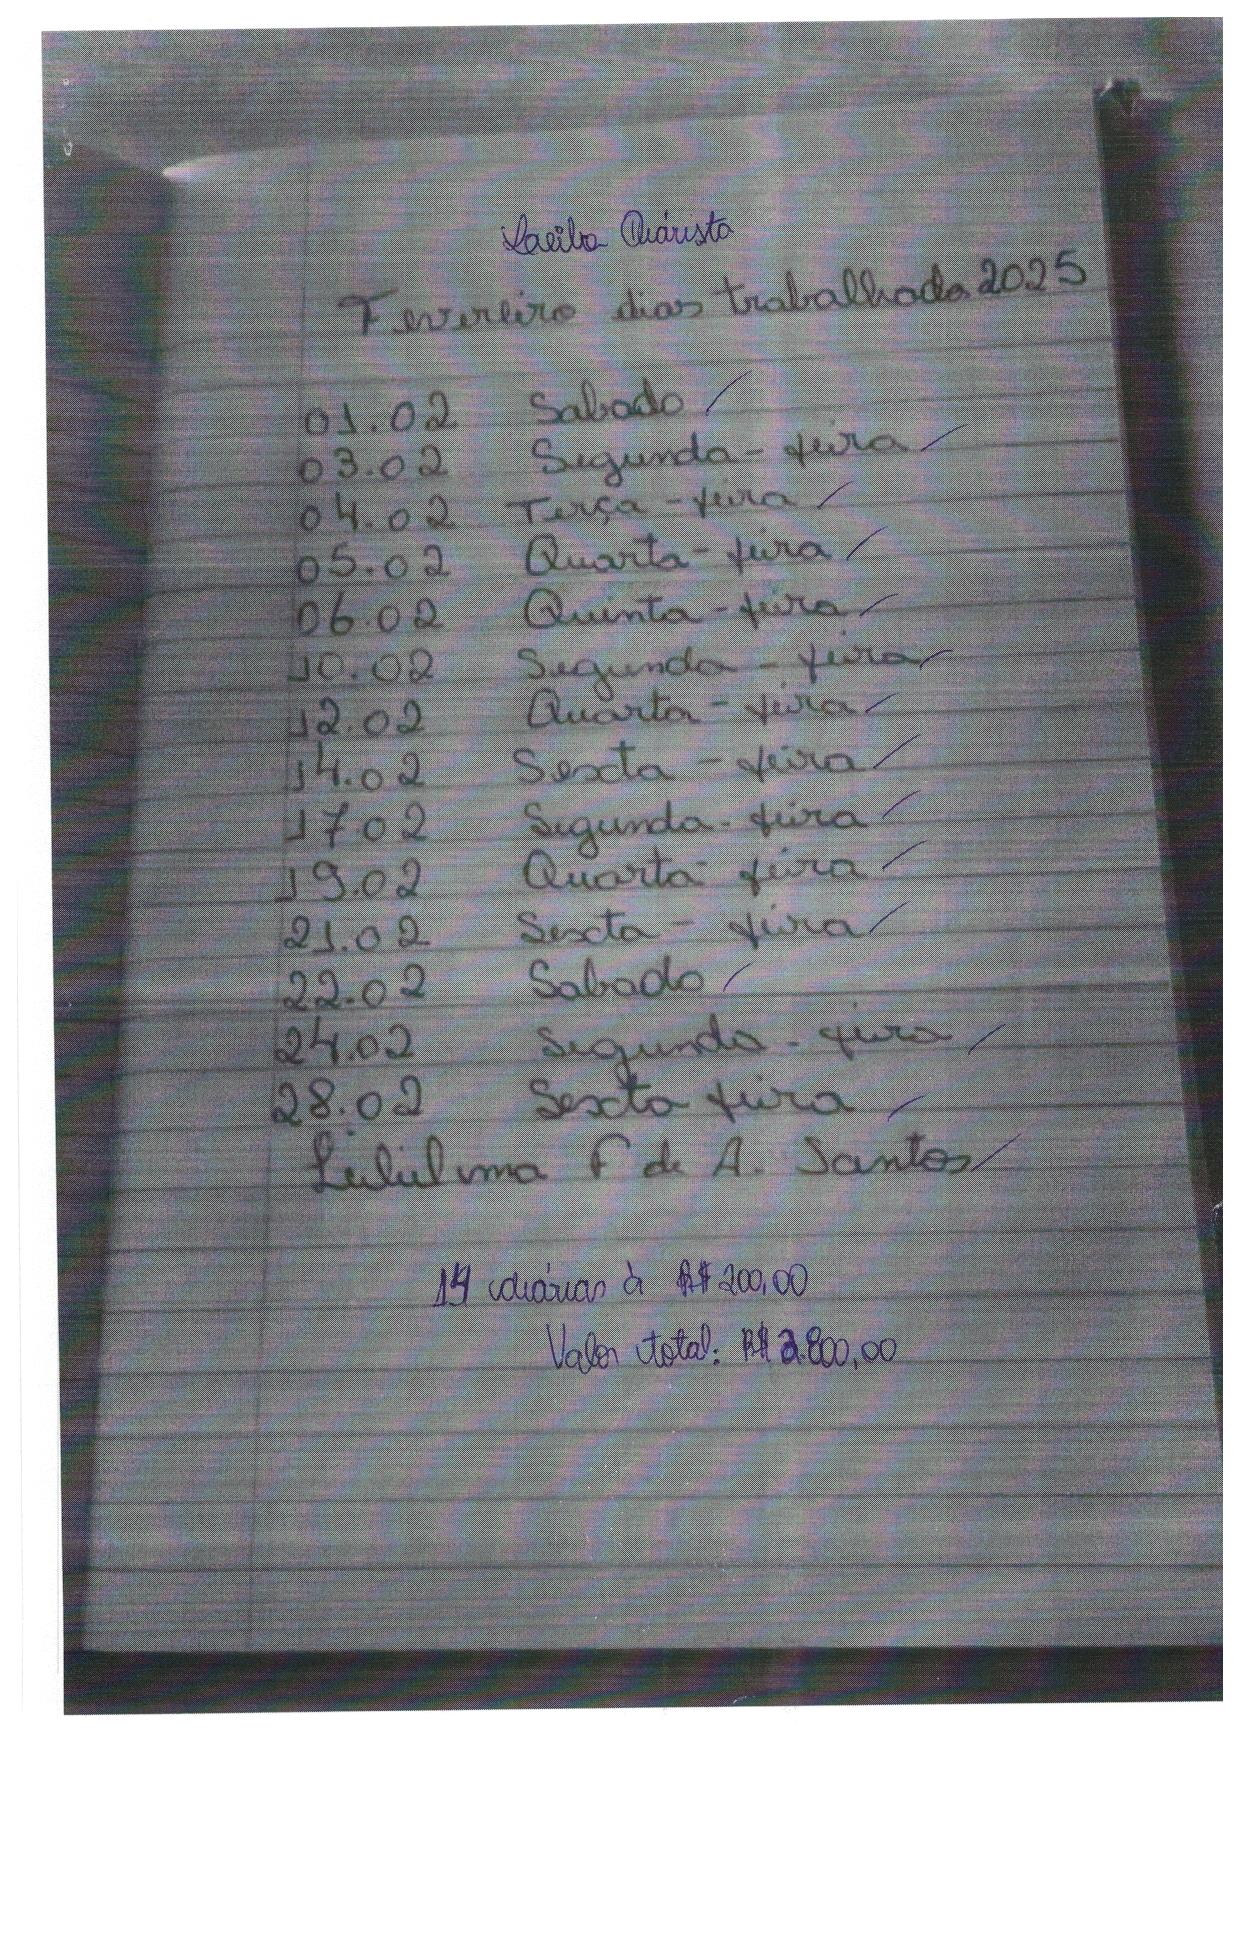 Diarista
Fevereiro dias trabalhado 2025
01.02 Sabado
03.02 Segunda-feira
04.02 Terça-feira
05.02 Quarta-feira
06.02 Quinta-feira
10.02 Segunda-feira
12.02 Quarta-feira
14.02 Sexta-feira
17.02 Segunda-feira
19.02 Quarta-feira
21.02 Sexta-feira
22.02 Sabado
24.02 Segunda-feira
28.02 Sexta feira
F de A. Santos
14 diárias à R$ 200,00
Valor total: R$ 2.800,00